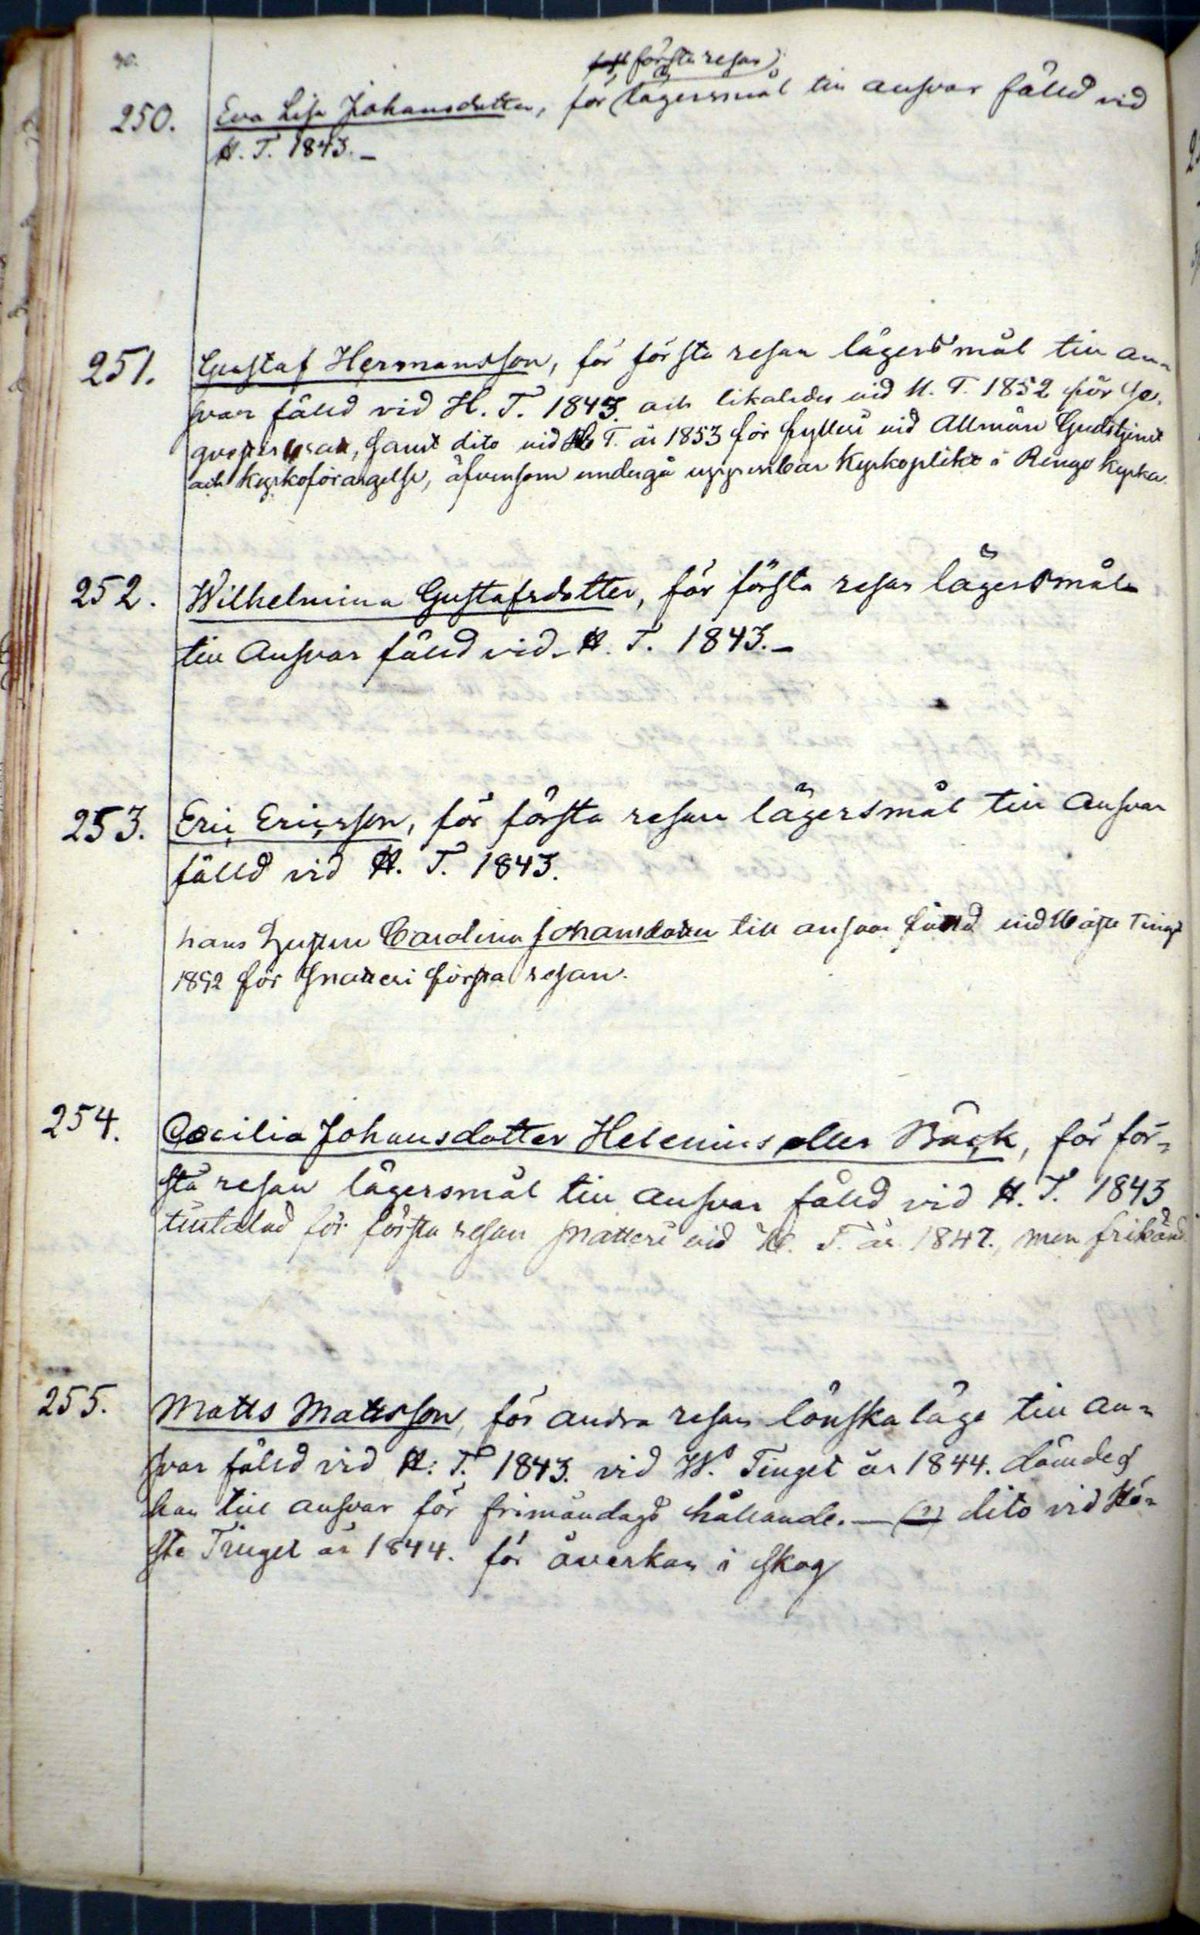 första resan
250. Eva Lisa Johansdotter, för lägersmål till ansvar fälld vid
H. T. 1843.
251. Gustaf Hermansson, för första resan lägersmål till an-
svar fälld vid H. T. 1843 och likaledes vid H. T. 1852 för
samt dito vid H T. år 1853 för fylleri vid Allmän Gudstjenst
och Kyrkoförargelse, äfvensom undergå uppenbar Kyrkoplikt i Kyrka.
252. Wilhelmina Gustafsdotter, för första resan lägersmål
till Ansvar fälld vid H. T. 1843.
253. Eric Ericsson, för första resan lägersmål till Ansvar
fälld vid H. T. 1843.
hans hustru Carolina Johansdotter till ansvar fälld vid Höste Tinget
1852 för snatteri första resan.
254. Cecilia Johansdotter Helenius eller Bäck, för för-
sta resan lägersmål till Ansvar fälld vid H. T. 1843
tilltalad för första resan snatteri vid H. T. år 1847, men frikänd
255. Matts Mattsson, för andra resan lönskaläge till an-
svar fälld vid H. T. 1843. vid W. Tinget år 1844. dömdes
han till ansvar för frimåndags hållande. — dito vid Hö-
ste Tinget år 1844. för åverkan i skog